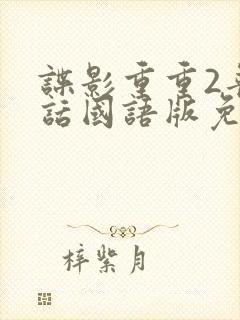 諜影重重2
話國語版免
梓紫月